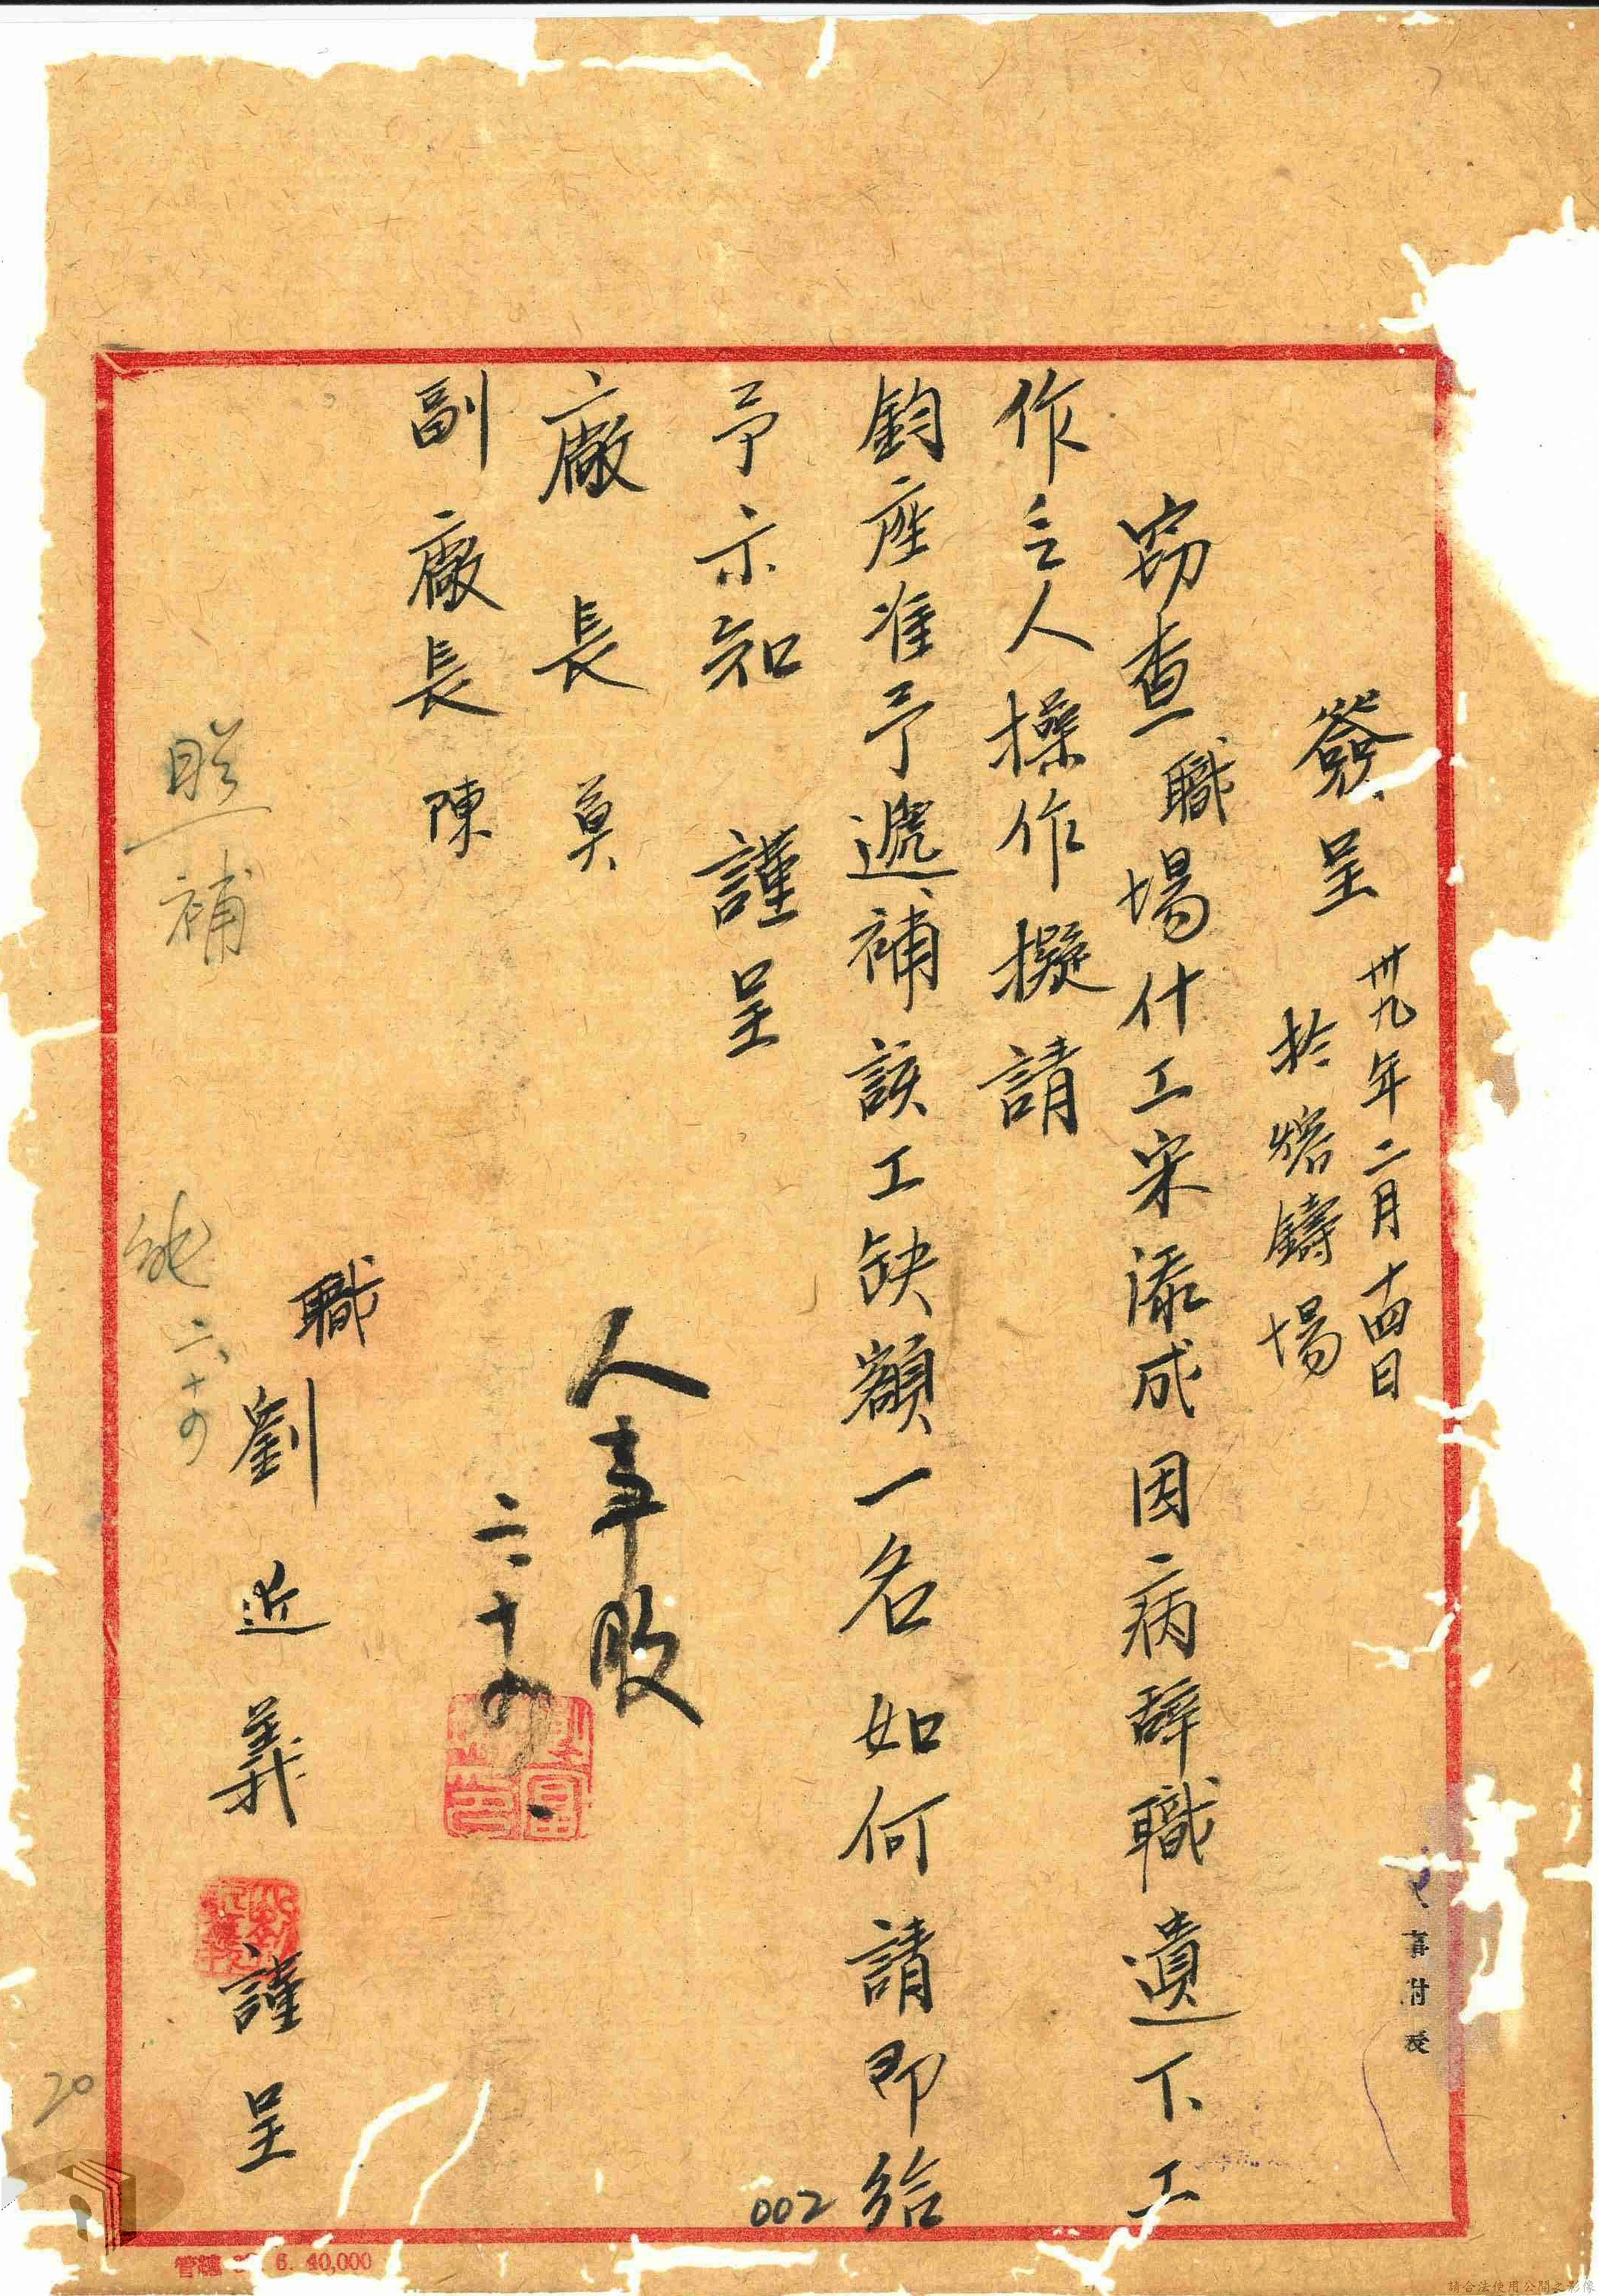 簽呈 卅九年二月十四日
於熔鑄場
窃查職場什工宋添成因病辞職遺下工
作乏人操作擬請
鈞座准予遞補該工缺額一名如何請即給
予示知 謹呈
廠長 莫
副廠長 陳
人事股
二、十四
職劉近義謹呈
照補
二、十四
20
002
6. 40,000
請合法使用公開之影像